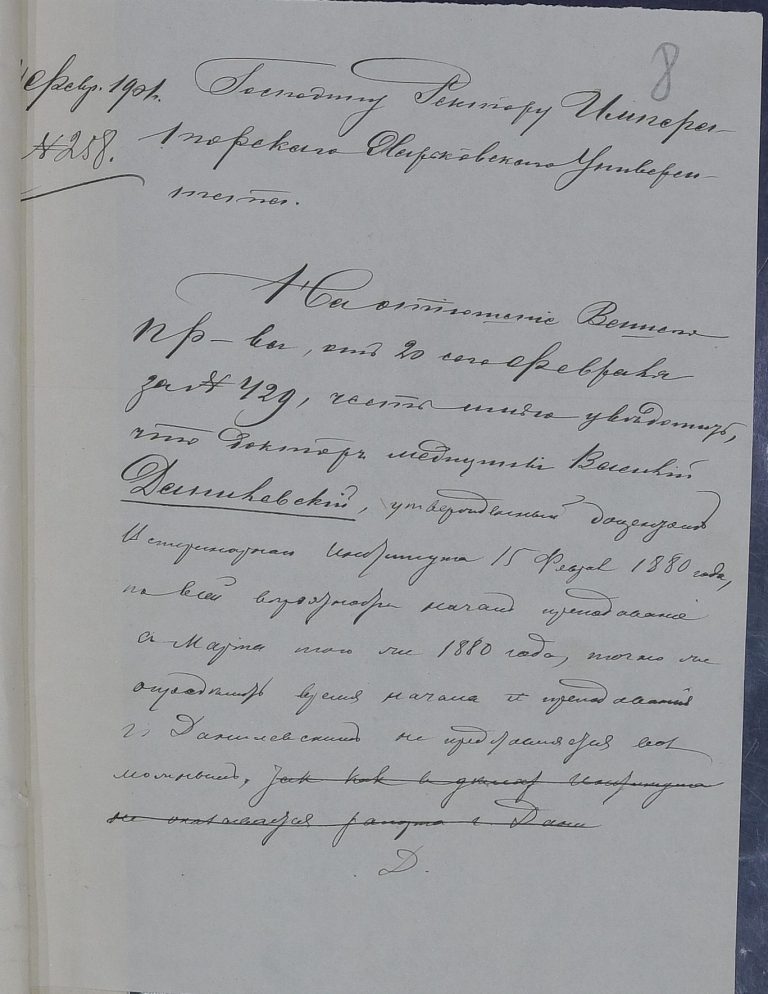 8
Февр. 1901.
№ 258.
Господину Ректору Импера-
торскаго Харьковскаго Универси-
тета.
На отношеніе Вашего
Пр-ва, отъ 20 сего Февраля
за № 429, честь имѣю увѣдомить,
что докторъ медицины Василій
Данилевскій, утвержденный доцентомъ
Ветеринарнаго Института 15 Февраля 1880 года,
по всей вѣроятности началъ преподаваніе
съ Марта того же 1880 года, точно же
опредѣлить время начала преподаванія
г. Данилевскимъ не представляется воз
можнымъ, такъ какъ въ дѣлахъ Института
не оказывается рапорта г. Дани
Д.